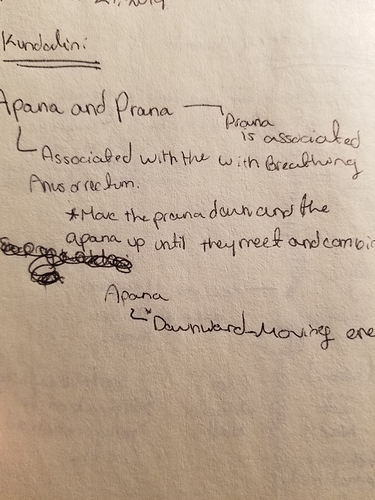 Kundalini
Apana and Prana
Prana
is associated
with Breathing
Associated with the
Anus or rectum.
*Move the prana down and the
apana up until they meet and combi
Apana
*Downward-Moving ene